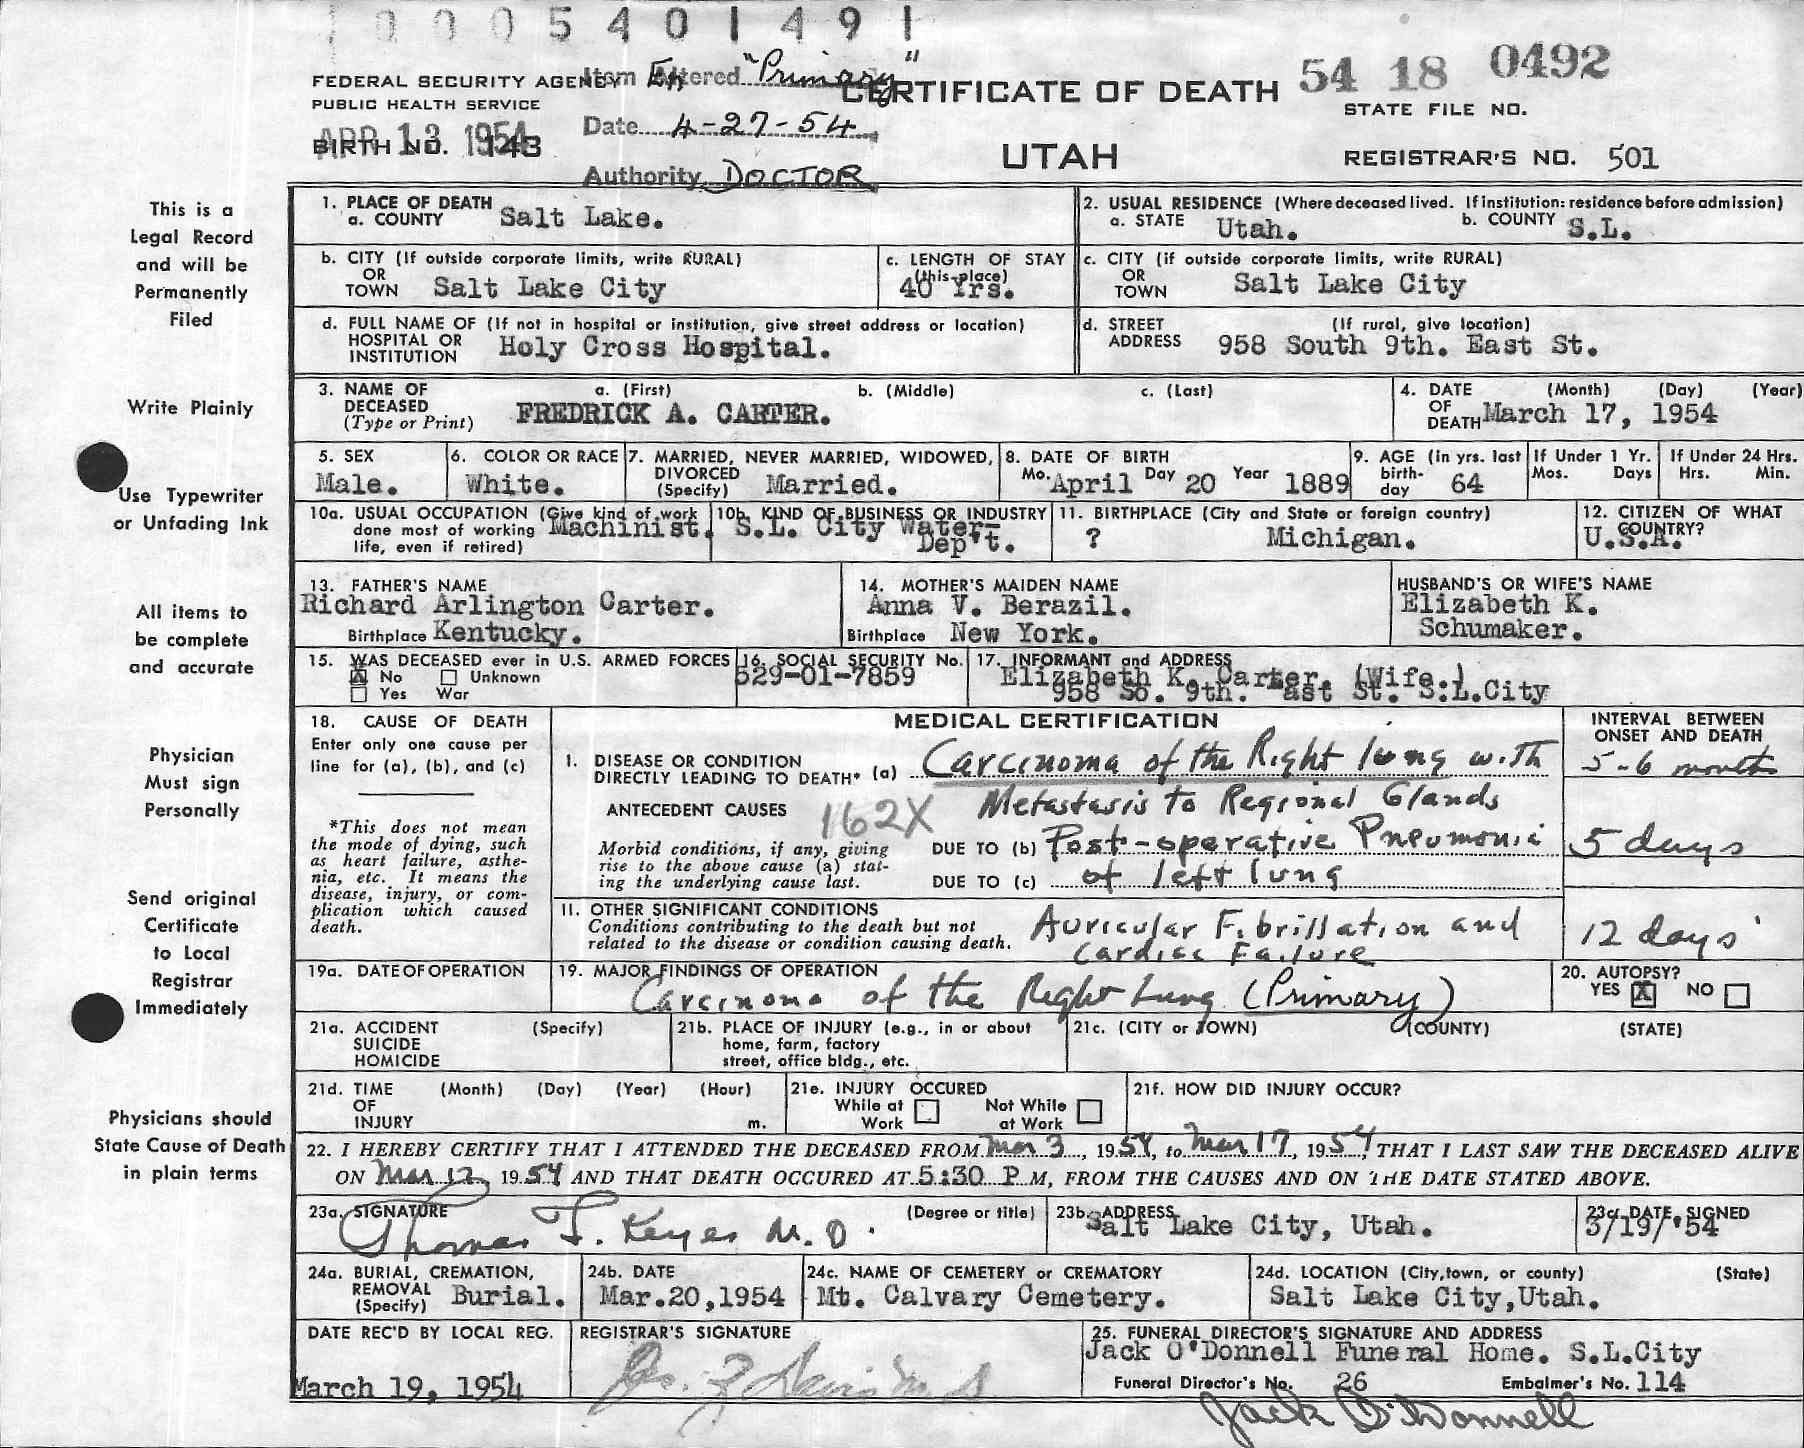 1000540149 1
FEDERAL SECURITY AGENCY Item En Altered "Primary"
PUBLIC HEALTH SERVICE
CERTIFICATE OF DEATH 54 18 0492
STATE FILE NO.
APR 13 1954
BIRTH NO. 143
Date 4-27-54
UTAH
REGISTRAR'S NO. 501
Authority DOCTOR
This is a
Legal Record
and will be
Permanently
Filed
Write Plainly
Use Typewriter
or Unfading Ink
All items to
be complete
and accurate
Physician
Must sign
Personally
Send original
Certificate
to Local
Registrar
Immediately
Physicians should
State Cause of Death
in plain terms
1. PLACE OF DEATH
a. COUNTY Salt Lake.
2. USUAL RESIDENCE (Where deceased lived. If institution: residence before admission)
a. STATE Utah. b. COUNTY S.L.
b. CITY (If outside corporate limits, write RURAL)
OR
TOWN Salt Lake City
c. LENGTH OF STAY
(this place)
40 Yrs.
c. CITY (if outside corporate limits, write RURAL)
OR
TOWN Salt Lake City
d. FULL NAME OF (If not in hospital or institution, give street address or location)
HOSPITAL OR
INSTITUTION Holy Cross Hospital.
d. STREET (If rural, give location)
ADDRESS 958 South 9th. East St.
3. NAME OF a. (First) b. (Middle) c. (Last)
DECEASED
(Type or Print) FREDRICK A. CARTER.
4. DATE (Month) (Day) (Year)
OF
DEATH March 17, 1954
5. SEX
Male.
6. COLOR OR RACE
White.
7. MARRIED, NEVER MARRIED, WIDOWED,
DIVORCED
(Specify) Married.
8. DATE OF BIRTH
Mo. April Day 20 Year 1889
9. AGE (in yrs. last
birth-
day 64
If Under 1 Yr.
Mos. Days
If Under 24 Hrs.
Hrs. Min.
10a. USUAL OCCUPATION (Give kind of work
done most of working Machinist.
life, even if retired)
10b. KIND OF BUSINESS OR INDUSTRY
S.L. City Water-
Dep't.
11. BIRTHPLACE (City and State or foreign country)
? Michigan.
12. CITIZEN OF WHAT
COUNTRY?
U.S.A.
13. FATHER'S NAME
Richard Arlington Carter.
Birthplace Kentucky.
14. MOTHER'S MAIDEN NAME
Anna V. Berazil.
Birthplace New York.
HUSBAND'S OR WIFE'S NAME
Elizabeth K.
Schumaker.
15. WAS DECEASED ever in U.S. ARMED FORCES
X No Unknown
Yes War
16. SOCIAL SECURITY No.
529-01-7859
17. INFORMANT and ADDRESS
Elizabeth K. Carter. (Wife.)
958 So. 9th. East St. S.L.City
18. CAUSE OF DEATH
Enter only one cause per
line for (a), (b), and (c)
*This does not mean
the mode of dying, such
as heart failure, asthe-
nia, etc. It means the
disease, injury, or com-
plication which caused
death.
MEDICAL CERTIFICATION
INTERVAL BETWEEN
ONSET AND DEATH
I. DISEASE OR CONDITION
DIRECTLY LEADING TO DEATH* (a) Carcinoma of the Right lung with
5-6 months
ANTECEDENT CAUSES 162X Metastasis to Regional Glands
Morbid conditions, if any, giving
rise to the above cause (a) stat-
ing the underlying cause last.
DUE TO (b) Post-operative Pneumonia
5 days
DUE TO (c) of left lung
II. OTHER SIGNIFICANT CONDITIONS
Conditions contributing to the death but not
related to the disease or condition causing death.
Auricular Fibrillation and
Cardiac Failure
12 days
19a. DATE OF OPERATION
19. MAJOR FINDINGS OF OPERATION
Carcinoma of the Right Lung (Primary)
20. AUTOPSY?
YES X NO
21a. ACCIDENT (Specify)
SUICIDE
HOMICIDE
21b. PLACE OF INJURY (e.g., in or about
home, farm, factory
street, office bldg., etc.
21c. (CITY or TOWN) (COUNTY) (STATE)
21d. TIME (Month) (Day) (Year) (Hour)
OF
INJURY m.
21e. INJURY OCCURED
While at Not While
Work at Work
21f. HOW DID INJURY OCCUR?
22. I HEREBY CERTIFY THAT I ATTENDED THE DECEASED FROM Mar 3, 1954, to Mar 17, 1954, THAT I LAST SAW THE DECEASED ALIVE
ON Mar 17 1954 AND THAT DEATH OCCURED AT 5:30 P M, FROM THE CAUSES AND ON THE DATE STATED ABOVE.
23a. SIGNATURE (Degree or title)
Thomas J. Keyes M.D.
23b. ADDRESS
Salt Lake City, Utah.
23c. DATE SIGNED
3/19/'54
24a. BURIAL, CREMATION,
REMOVAL
(Specify) Burial.
24b. DATE
Mar.20,1954
24c. NAME OF CEMETERY or CREMATORY
Mt. Calvary Cemetery.
24d. LOCATION (City,town, or county) (State)
Salt Lake City,Utah.
DATE REC'D BY LOCAL REG.
March 19, 1954
REGISTRAR'S SIGNATURE
25. FUNERAL DIRECTOR'S SIGNATURE AND ADDRESS
Jack O'Donnell Funeral Home. S.L.City
Funeral Director's No. 26 Embalmer's No. 114
Jack O'Donnell